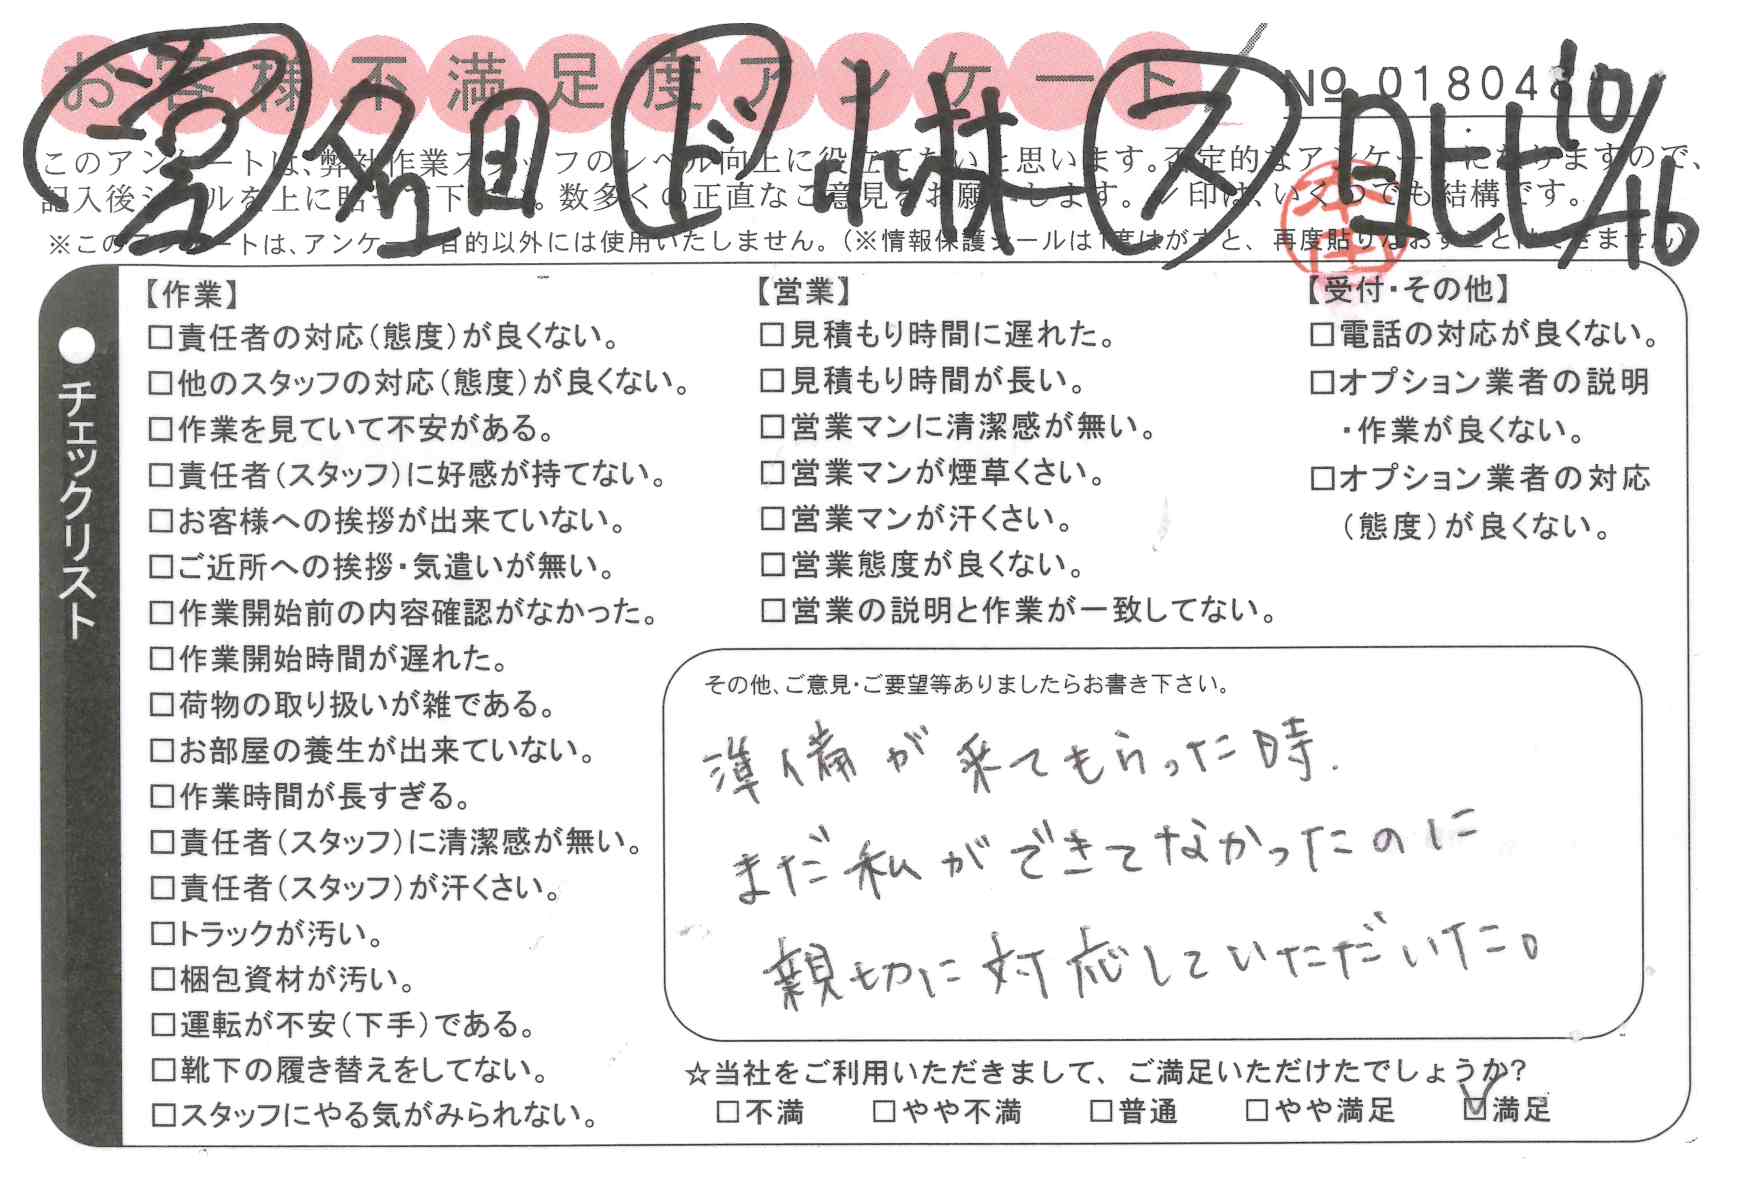 お客様不満足度アンケート
No 018048
営 多田 ド 小林 ス 日比 10/16
このアンケートは、弊社作業スタッフのレベル向上に役立てたいと思います。否定的なアンケートになりますので、
記入後シールを上に貼って下さい。数多くの正直なご意見をお願いします。レ印は、いくつでも結構です。
※このアンケートは、アンケート目的以外には使用いたしません。(※情報保護シールは1度はがすと、再度貼りなおすことはできません)
本田
●チェックリスト
【作業】
□責任者の対応(態度)が良くない。
□他のスタッフの対応(態度)が良くない。
□作業を見ていて不安がある。
□責任者(スタッフ)に好感が持てない。
□お客様への挨拶が出来ていない。
□ご近所への挨拶・気遣いが無い。
□作業開始前の内容確認がなかった。
□作業開始時間が遅れた。
□荷物の取り扱いが雑である。
□お部屋の養生が出来ていない。
□作業時間が長すぎる。
□責任者(スタッフ)に清潔感が無い。
□責任者(スタッフ)が汗くさい。
□トラックが汚い。
□梱包資材が汚い。
□運転が不安(下手)である。
□靴下の履き替えをしてない。
□スタッフにやる気がみられない。
【営業】
□見積もり時間に遅れた。
□見積もり時間が長い。
□営業マンに清潔感が無い。
□営業マンが煙草くさい。
□営業マンが汗くさい。
□営業態度が良くない。
□営業の説明と作業が一致してない。
【受付・その他】
□電話の対応が良くない。
□オプション業者の説明
・作業が良くない。
□オプション業者の対応
(態度)が良くない。
その他、ご意見・ご要望等ありましたらお書き下さい。
準備が来てもらった時.
まだ私ができてなかったのに
親切に対応していただいた。
☆当社をご利用いただきまして、ご満足いただけたでしょうか?
□不満 □やや不満 □普通 □やや満足 ☑満足